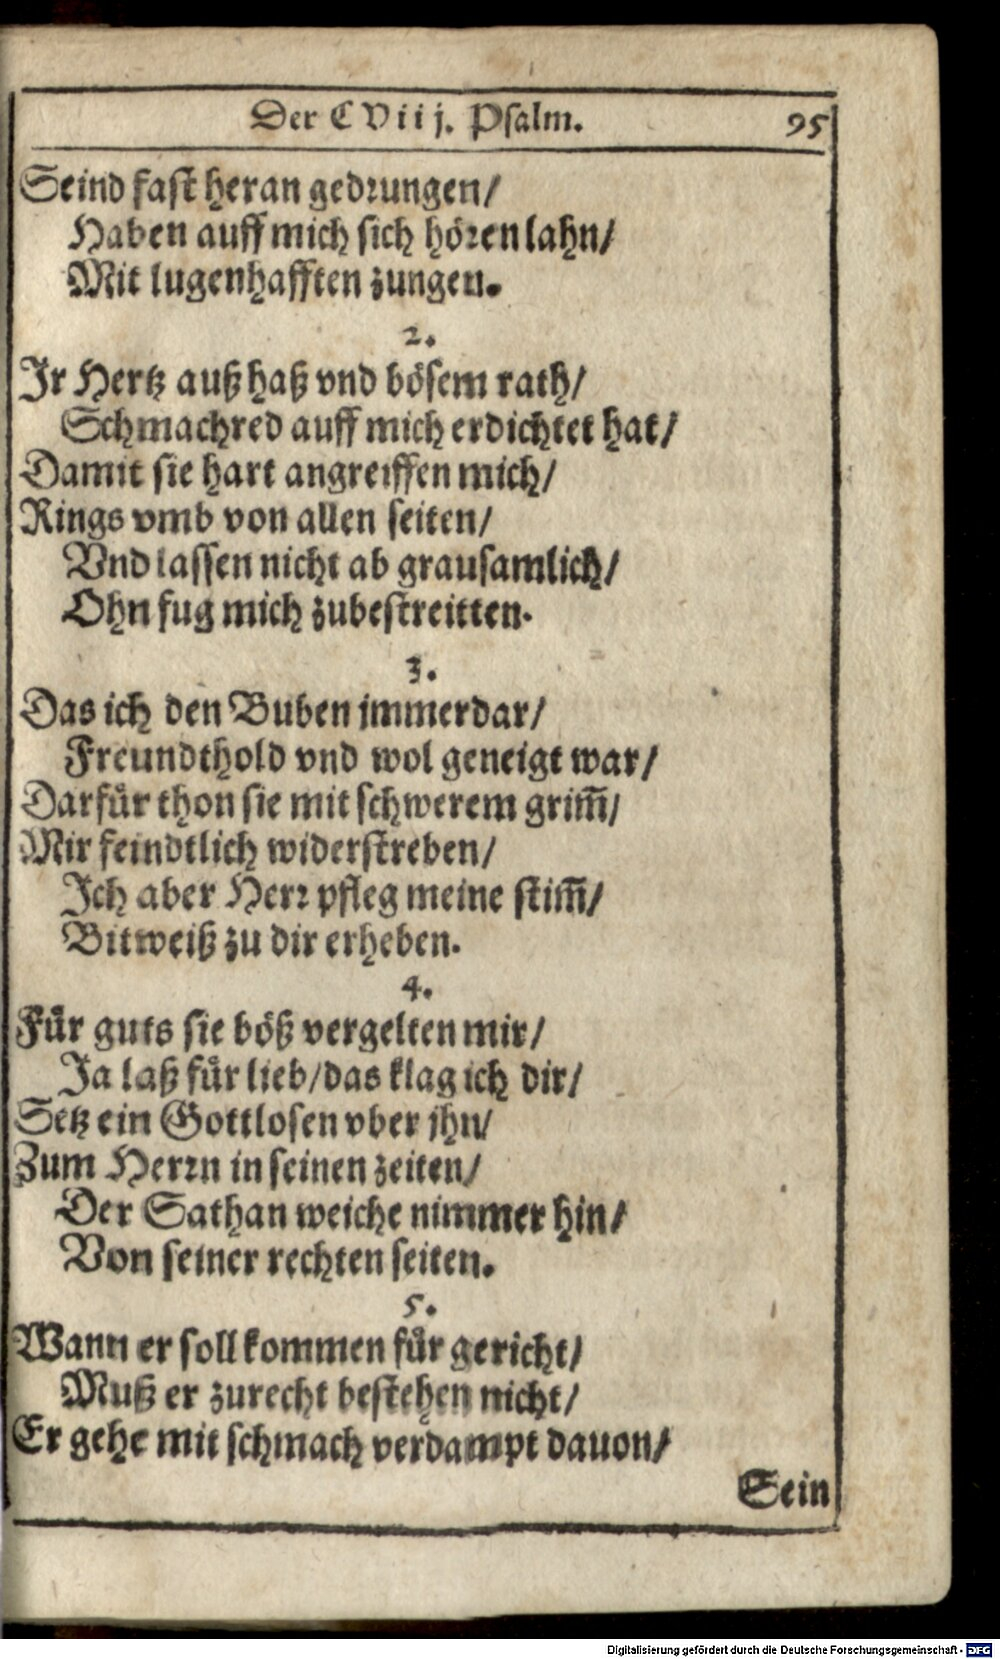 Der CViij. Psalm. 95
Seind fast heran gedrungen/
Haben auff mich sich hören lahn/
Mit lugenhafften zungen.
2.
Ir Hertz auß haß vnd bösem rath/
Schmachred auff mich erdichtet hat/
Damit sie hart angreiffen mich/
Rings vmb von allen seiten/
Vnd lassen nicht ab grausamlich/
Ohn fug mich zubestreitten.
3.
Das ich den Buben jmmerdar/
Freundthold vnd wol geneigt war/
Darfür thon sie mit schwerem grim̄/
Mir feindtlich widerstreben/
Ich aber Herr pfleg meine stim̄/
Bitweiß zu dir erheben.
4.
Für guts sie böß vergelten mir/
Ja laß für lieb/das klag ich dir/
Setz ein Gottlosen vber jhn/
Zum Herrn in seinen zeiten/
Der Sathan weiche nimmer hin/
Von seiner rechten seiten.
5.
Wann er soll kommen für gericht/
Muß er zurecht bestehen nicht/
Er gehe mit schmach verdampt dauon/
Sein
Digitalisierung gefördert durch die Deutsche Forschungsgemeinschaft - DFG